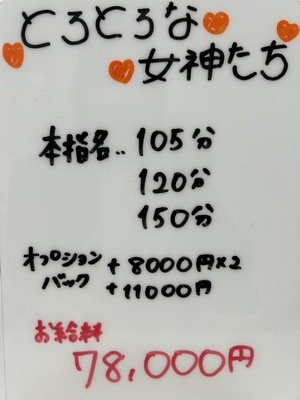 とろとろな
女神たち
本指名‥105分
120分
150分
オプション
バック
+8000円×2
+11000円
お給料
78,000円